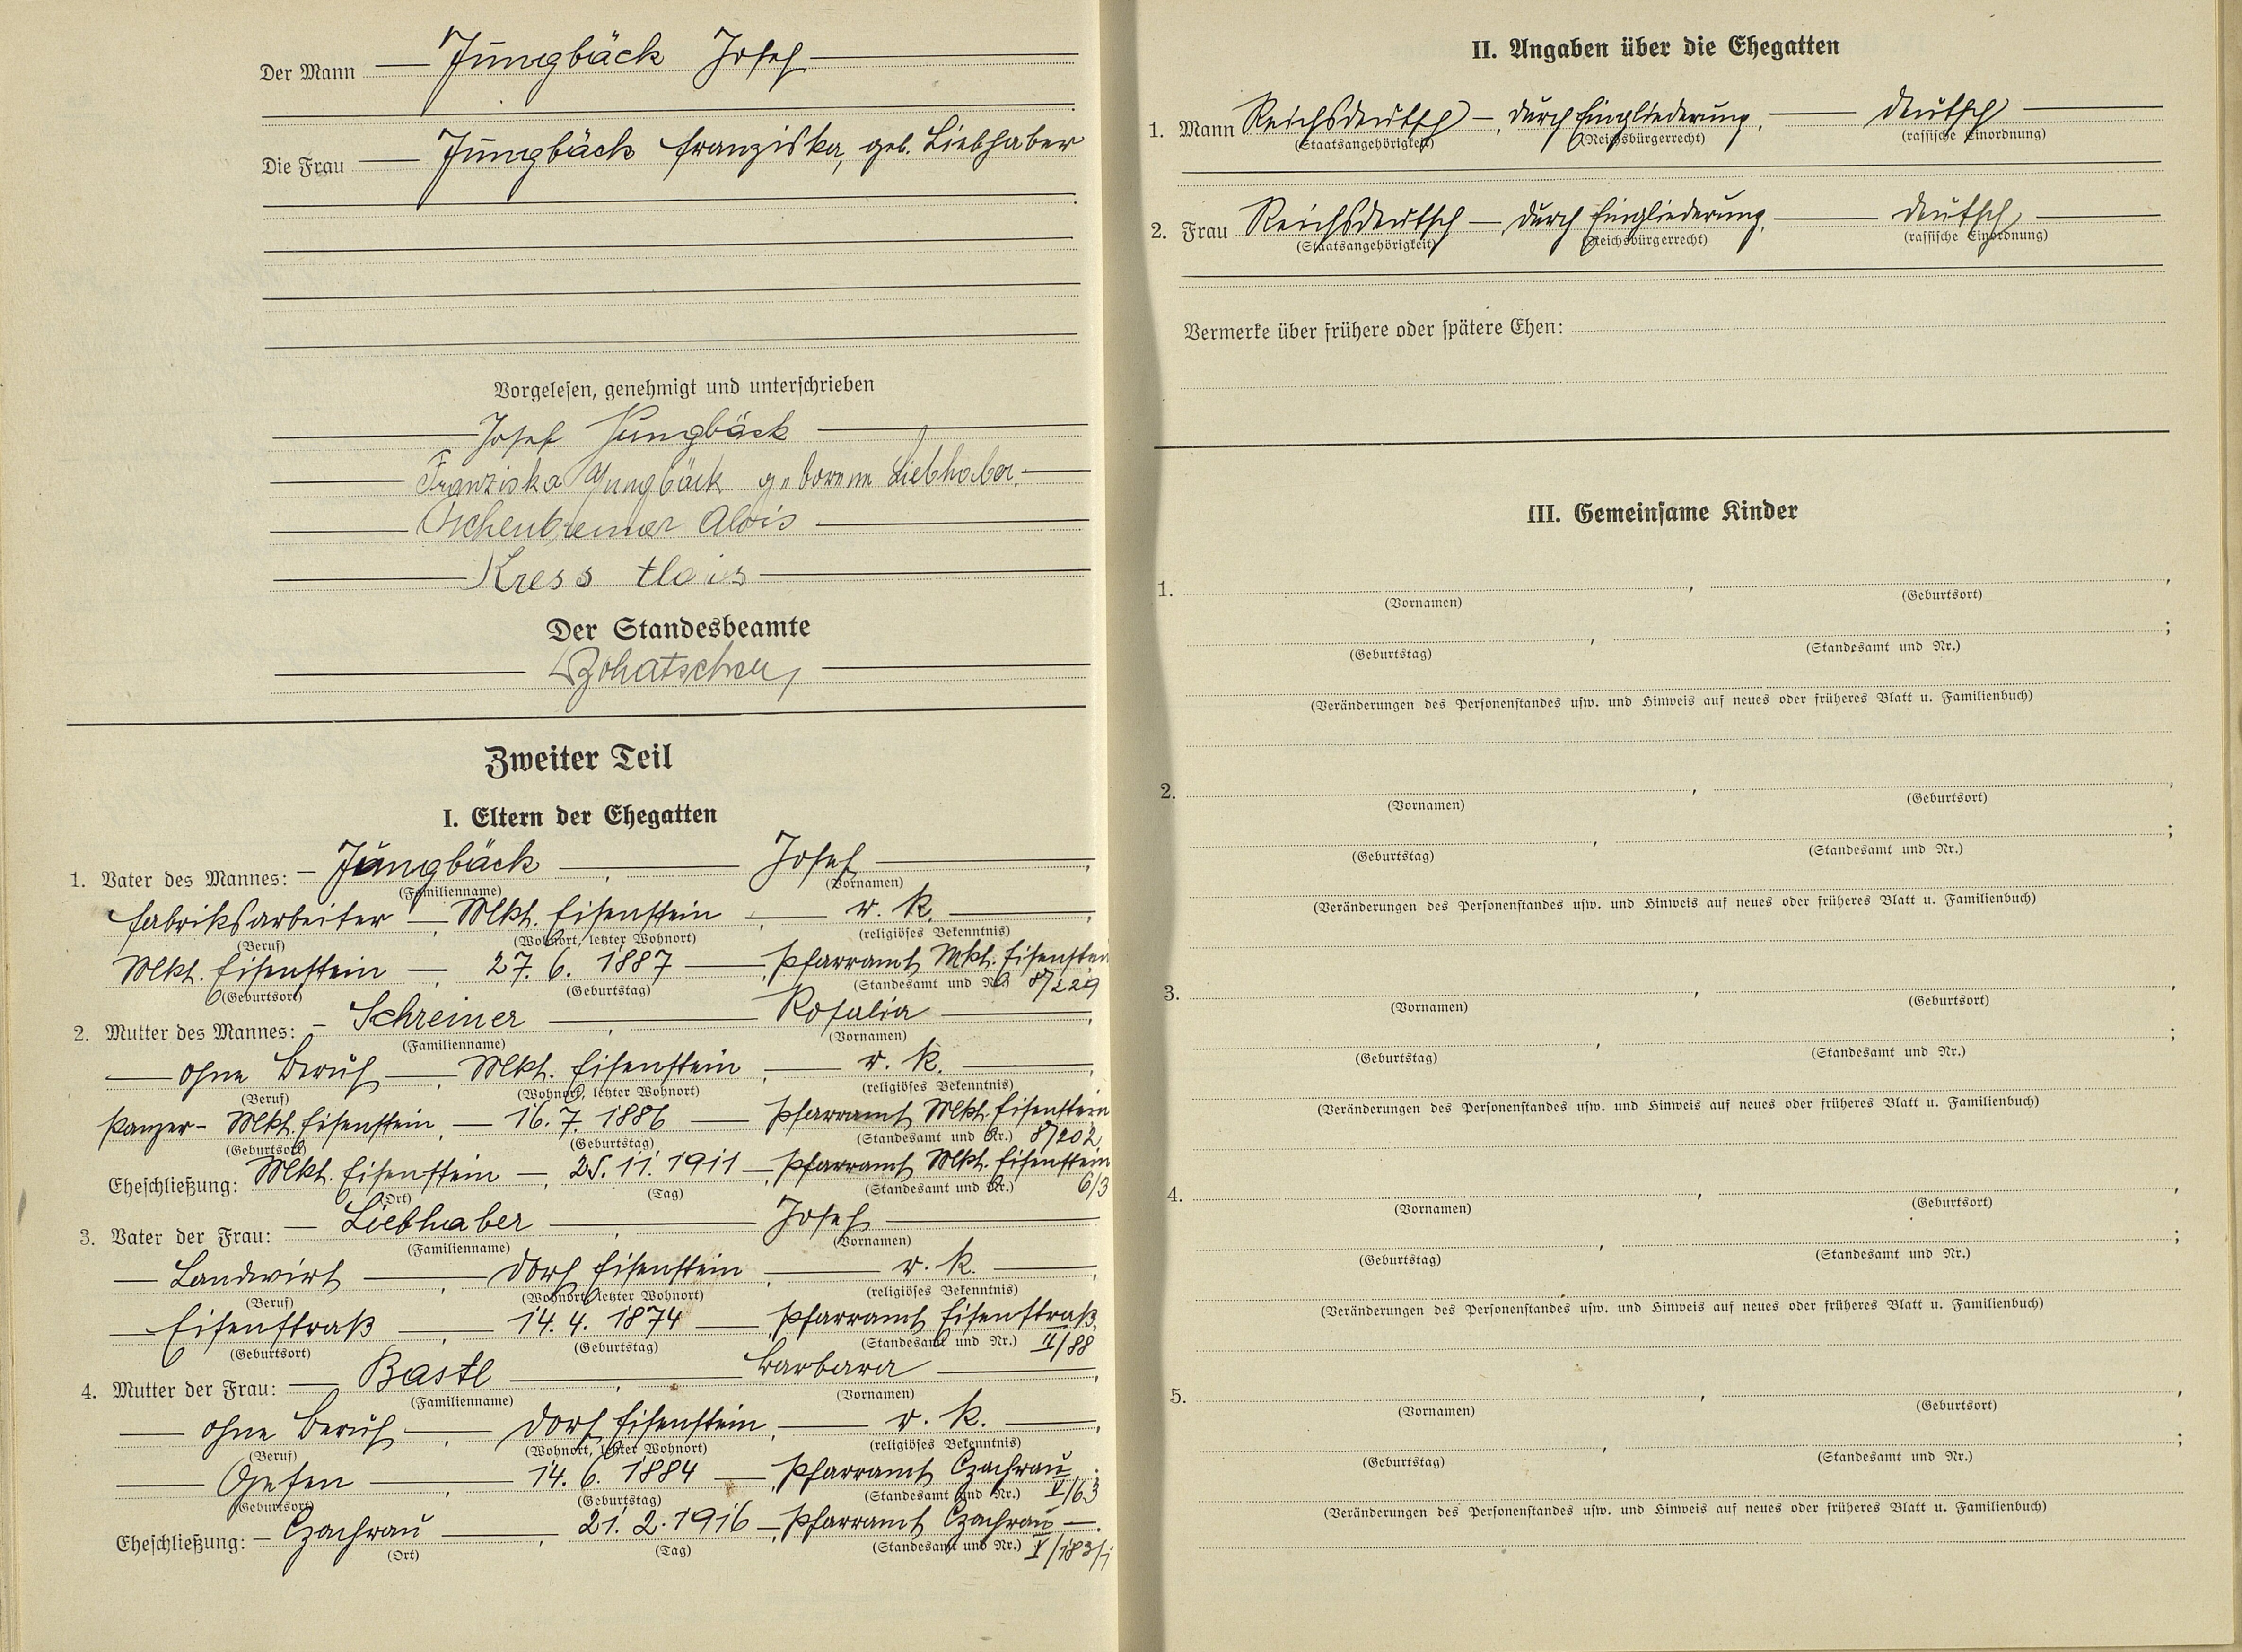 Der Mann — Jungbäck Josef —
Die Frau — Jungbäck Franziska, geb. Liebhaber
Vorgelesen, genehmigt und unterschrieben
Josef Jungbäck
Franziska Jungbäck geborene Liebhaber.
Alois
Kress Alois
Der Standesbeamte
Zweiter Teil
I. Eltern der Ehegatten
1. Vater des Mannes: — Jungbäck —, Josef —,
(Familienname) (Vornamen)
Fabriksarbeiter —, Mkt. Eisenstein, — r. k. —,
(Beruf) (Wohnort, letzter Wohnort) (religiöses Bekenntnis)
Mkt. Eisenstein —, 27. 6. 1887 —, Pfarramt Mkt. Eisenstein
(Geburtsort) (Geburtstag) (Standesamt und Nr.) 8/229
2. Mutter des Mannes: — Schreiner —, Rosalia —,
(Familienname) (Vornamen)
— ohne Beruf —, Mkt. Eisenstein, — r. k. —,
(Beruf) (Wohnort, letzter Wohnort) (religiöses Bekenntnis)
Panzer- Mkt. Eisenstein, — 16. 7. 1886 — Pfarramt Mkt. Eisenstein
(Geburtsort) (Geburtstag) (Standesamt und Nr.) 8/202
Eheschließung: Mkt. Eisenstein —, 25. 11. 1911 —, Pfarramt Mkt. Eisenstein
(Ort) (Tag) (Standesamt und Nr.) 6/3
3. Vater der Frau: — Liebhaber —, Josef —
(Familienname) (Vornamen)
— Landwirt —, Dorf Eisenstein, — r. k. —,
(Beruf) (Wohnort, letzter Wohnort) (religiöses Bekenntnis)
— Eisenstraß —, 14. 4. 1874 —, Pfarramt Eisenstraß,
(Geburtsort) (Geburtstag) (Standesamt und Nr.) II/88
4. Mutter der Frau: — Bastl —, Barbara —,
(Familienname) (Vornamen)
— ohne Beruf —, Dorf Eisenstein, — r. k. —,
(Beruf) (Wohnort, letzter Wohnort) (religiöses Bekenntnis)
— Gesen —, 14. 6. 1884 —, Pfarramt Czachrau
(Geburtsort) (Geburtstag) (Standesamt und Nr.) V/63
Eheschließung: — Czachrau —, 21. 2. 1916 —, Pfarramt Czachrau —.
(Ort) (Tag) (Standesamt und Nr.)
II. Angaben über die Ehegatten
1. Mann Reichsdeutsch —, durch Eingliederung, — deutsch —
(Staatsangehörigkeit) (Reichsbürgerrecht) (rassische Einordnung)
2. Frau Reichsdeutsch —, durch Eingliederung, — deutsch —
(Staatsangehörigkeit) (Reichsbürgerrecht) (rassische Einordnung)
Vermerke über frühere oder spätere Ehen:
III. Gemeinsame Kinder
1. , ,
(Vornamen) (Geburtsort)
, ;
(Geburtstag) (Standesamt und Nr.)
(Veränderungen des Personenstandes usw. und Hinweis auf neues oder früheres Blatt u. Familienbuch)
2. , ,
(Vornamen) (Geburtsort)
, ;
(Geburtstag) (Standesamt und Nr.)
(Veränderungen des Personenstandes usw. und Hinweis auf neues oder früheres Blatt u. Familienbuch)
3. , ,
(Vornamen) (Geburtsort)
, ;
(Geburtstag) (Standesamt und Nr.)
(Veränderungen des Personenstandes usw. und Hinweis auf neues oder früheres Blatt u. Familienbuch)
4. , ,
(Vornamen) (Geburtsort)
, ;
(Geburtstag) (Standesamt und Nr.)
(Veränderungen des Personenstandes usw. und Hinweis auf neues oder früheres Blatt u. Familienbuch)
5. , ,
(Vornamen) (Geburtsort)
, ;
(Geburtstag) (Standesamt und Nr.)
(Veränderungen des Personenstandes usw. und Hinweis auf neues oder früheres Blatt u. Familienbuch)